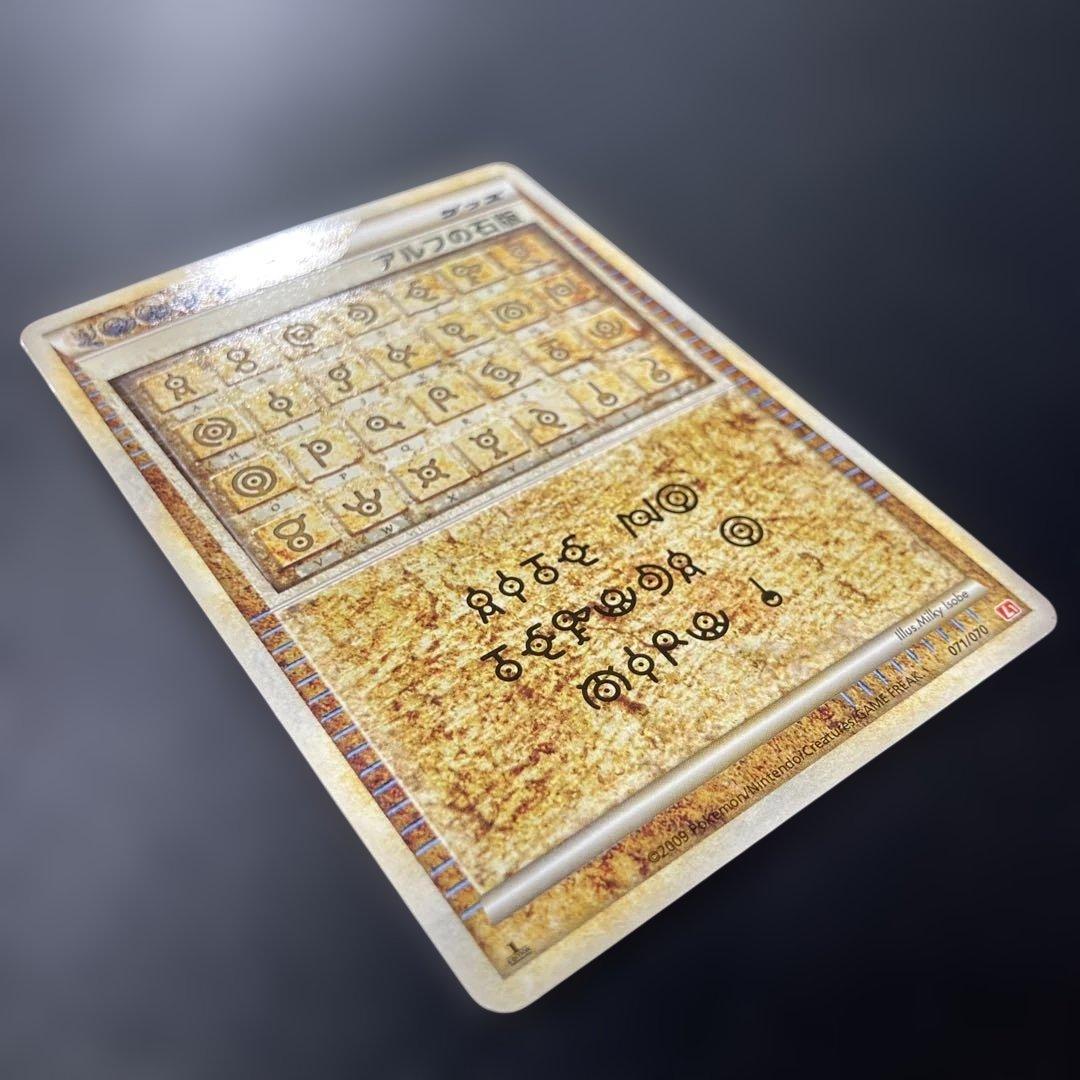 グッズ
アルフの石版
A B C D E F G
H I J K L M N
O P Q R S T U
V W X Y Z ! ?
AITE NO
TEFUDA O
MIRU !
illus. Milky Isobe
071/070 L1
©2009 Pokémon/Nintendo/Creatures/GAME FREAK.
1 EDITION